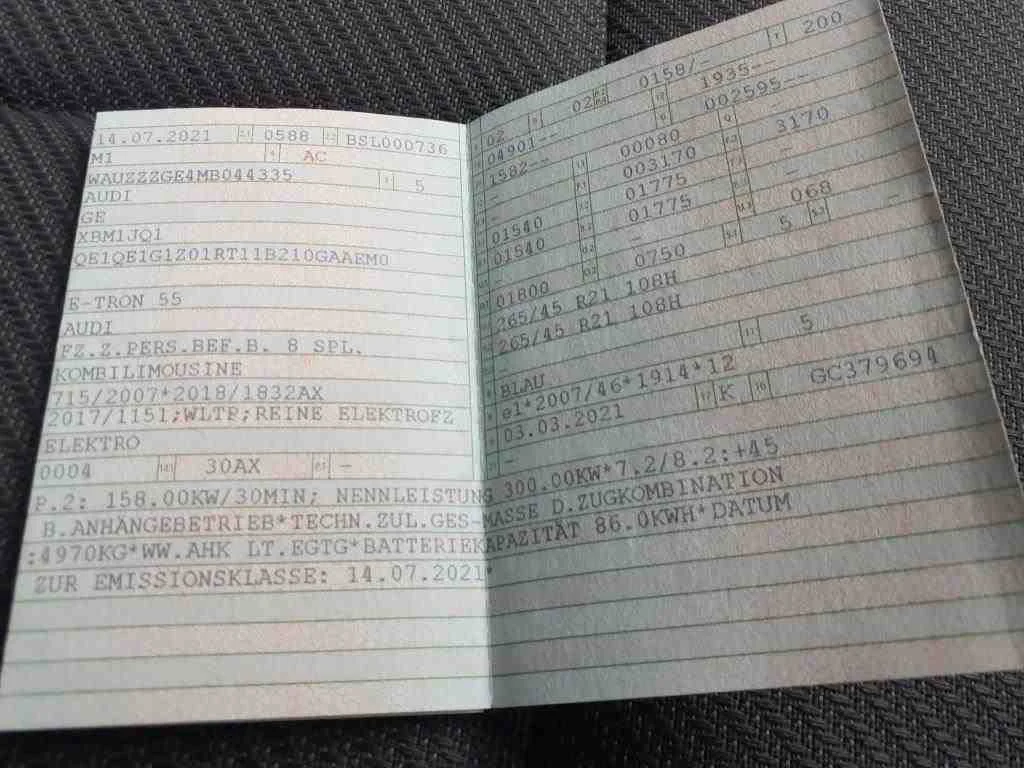 14.07.2021 2.1 0588 2.2 BSL000736
M1 4 AC
WAUZZZGE4MB044335 3 5
AUDI
GE
XBM1JQ1
QE1QE1G1Z01RT11B210GAAEM0
E-TRON 55
AUDI
FZ.Z.PERS.BEF.B. 8 SPL.
KOMBILIMOUSINE
715/2007*2018/1832AX
2017/1151;WLTP;REINE ELEKTROFZ
ELEKTRO
0004 14.1 30AX P.1 -
02 9 02 P.2 P.4 0158/- T 200
04901-- 1935--
1582-- 002595--
- 00080 3170
01540 003170 -
01540 01775 -
- 01775 068
01800 - 5 -
0750
265/45 R21 108H
265/45 R21 108H
BLAU 11 5
e1*2007/46*1914*12
03.03.2021 17 K 16 GC379694
-
P.2: 158.00KW/30MIN; NENNLEISTUNG 300.00KW*7.2/8.2:+45
B.ANHÄNGEBETRIEB*TECHN.ZUL.GES-MASSE D.ZUGKOMBINATION
:4970KG*WW.AHK LT.EGTG*BATTERIEKAPAZITÄT 86.0KWH*DATUM
ZUR EMISSIONSKLASSE: 14.07.2021*